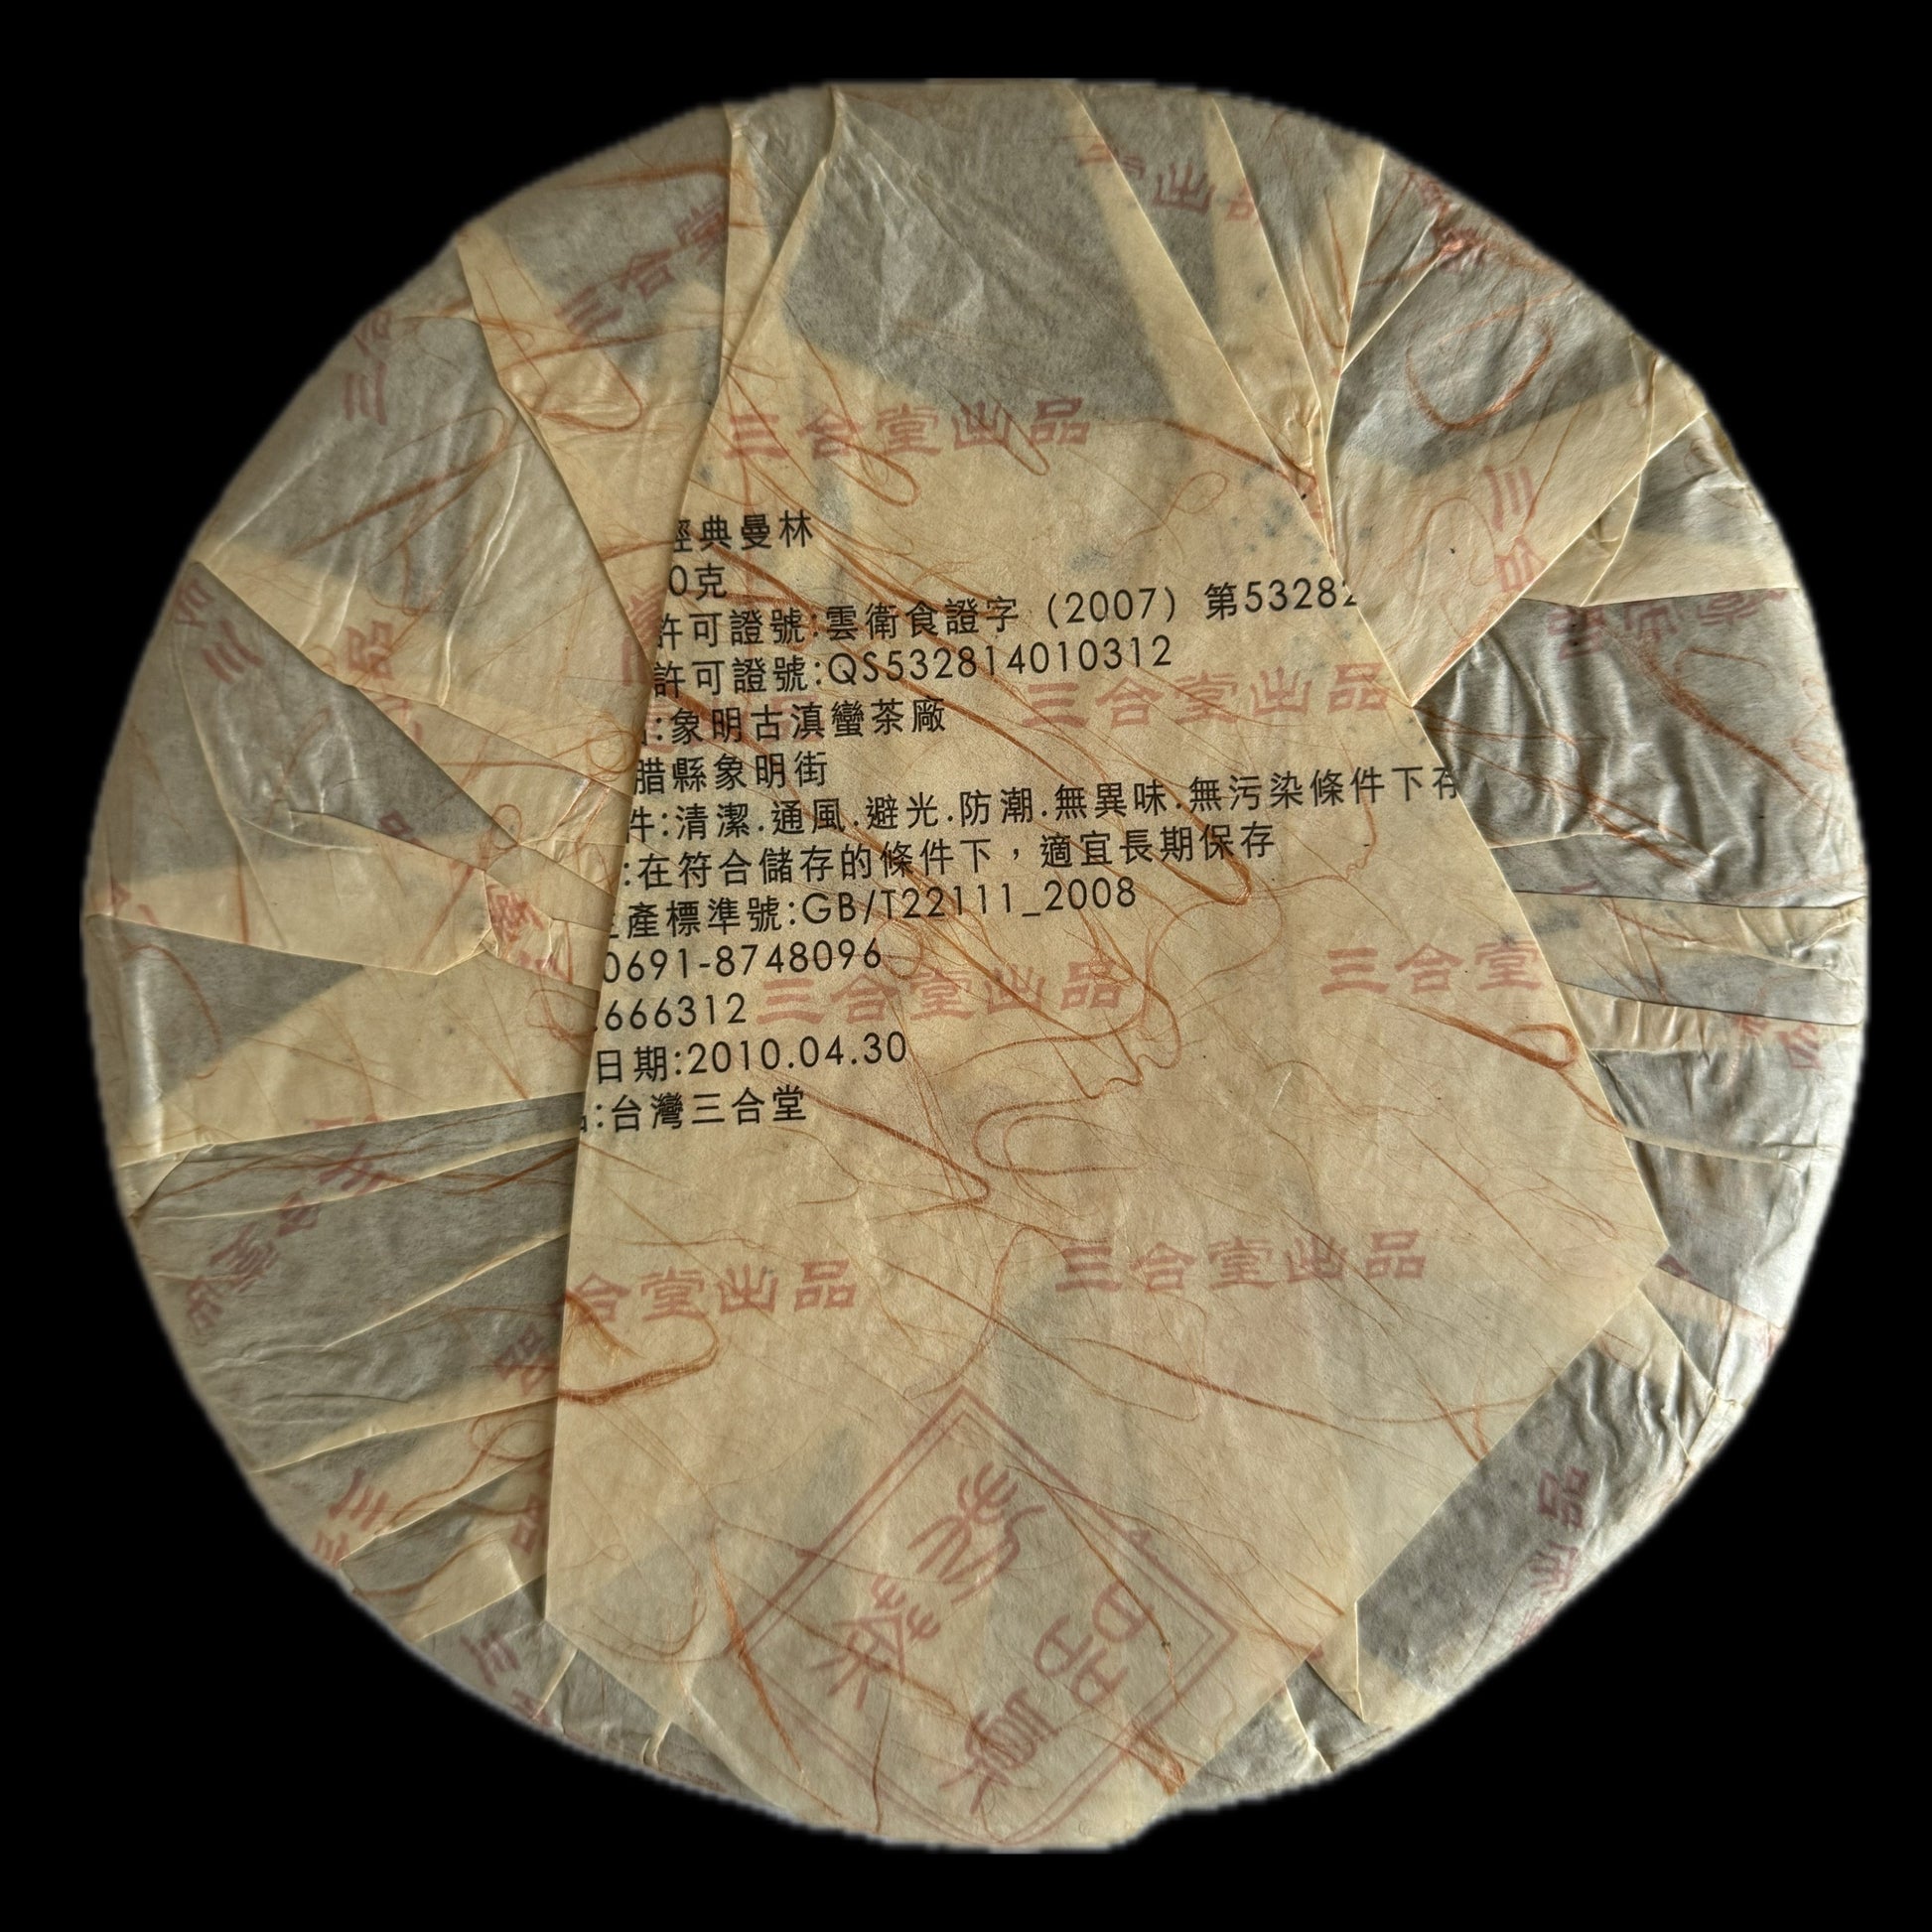 三合堂出品
經典曼林
0克
許可證號:雲衛食證字 (2007) 第53282
許可證號:QS532814010312
三合堂出品
:象明古滇蠻茶廠
腊縣象明街
件:清潔.通風.避光.防潮.無異味.無污染條件下存
:在符合儲存的條件下,適宜長期保存
產標準號:GB/T22111_2008
0691-8748096
三合堂
三合堂出品
.666312
日期:2010.04.30
:台灣三合堂
三合堂出品
合堂出品